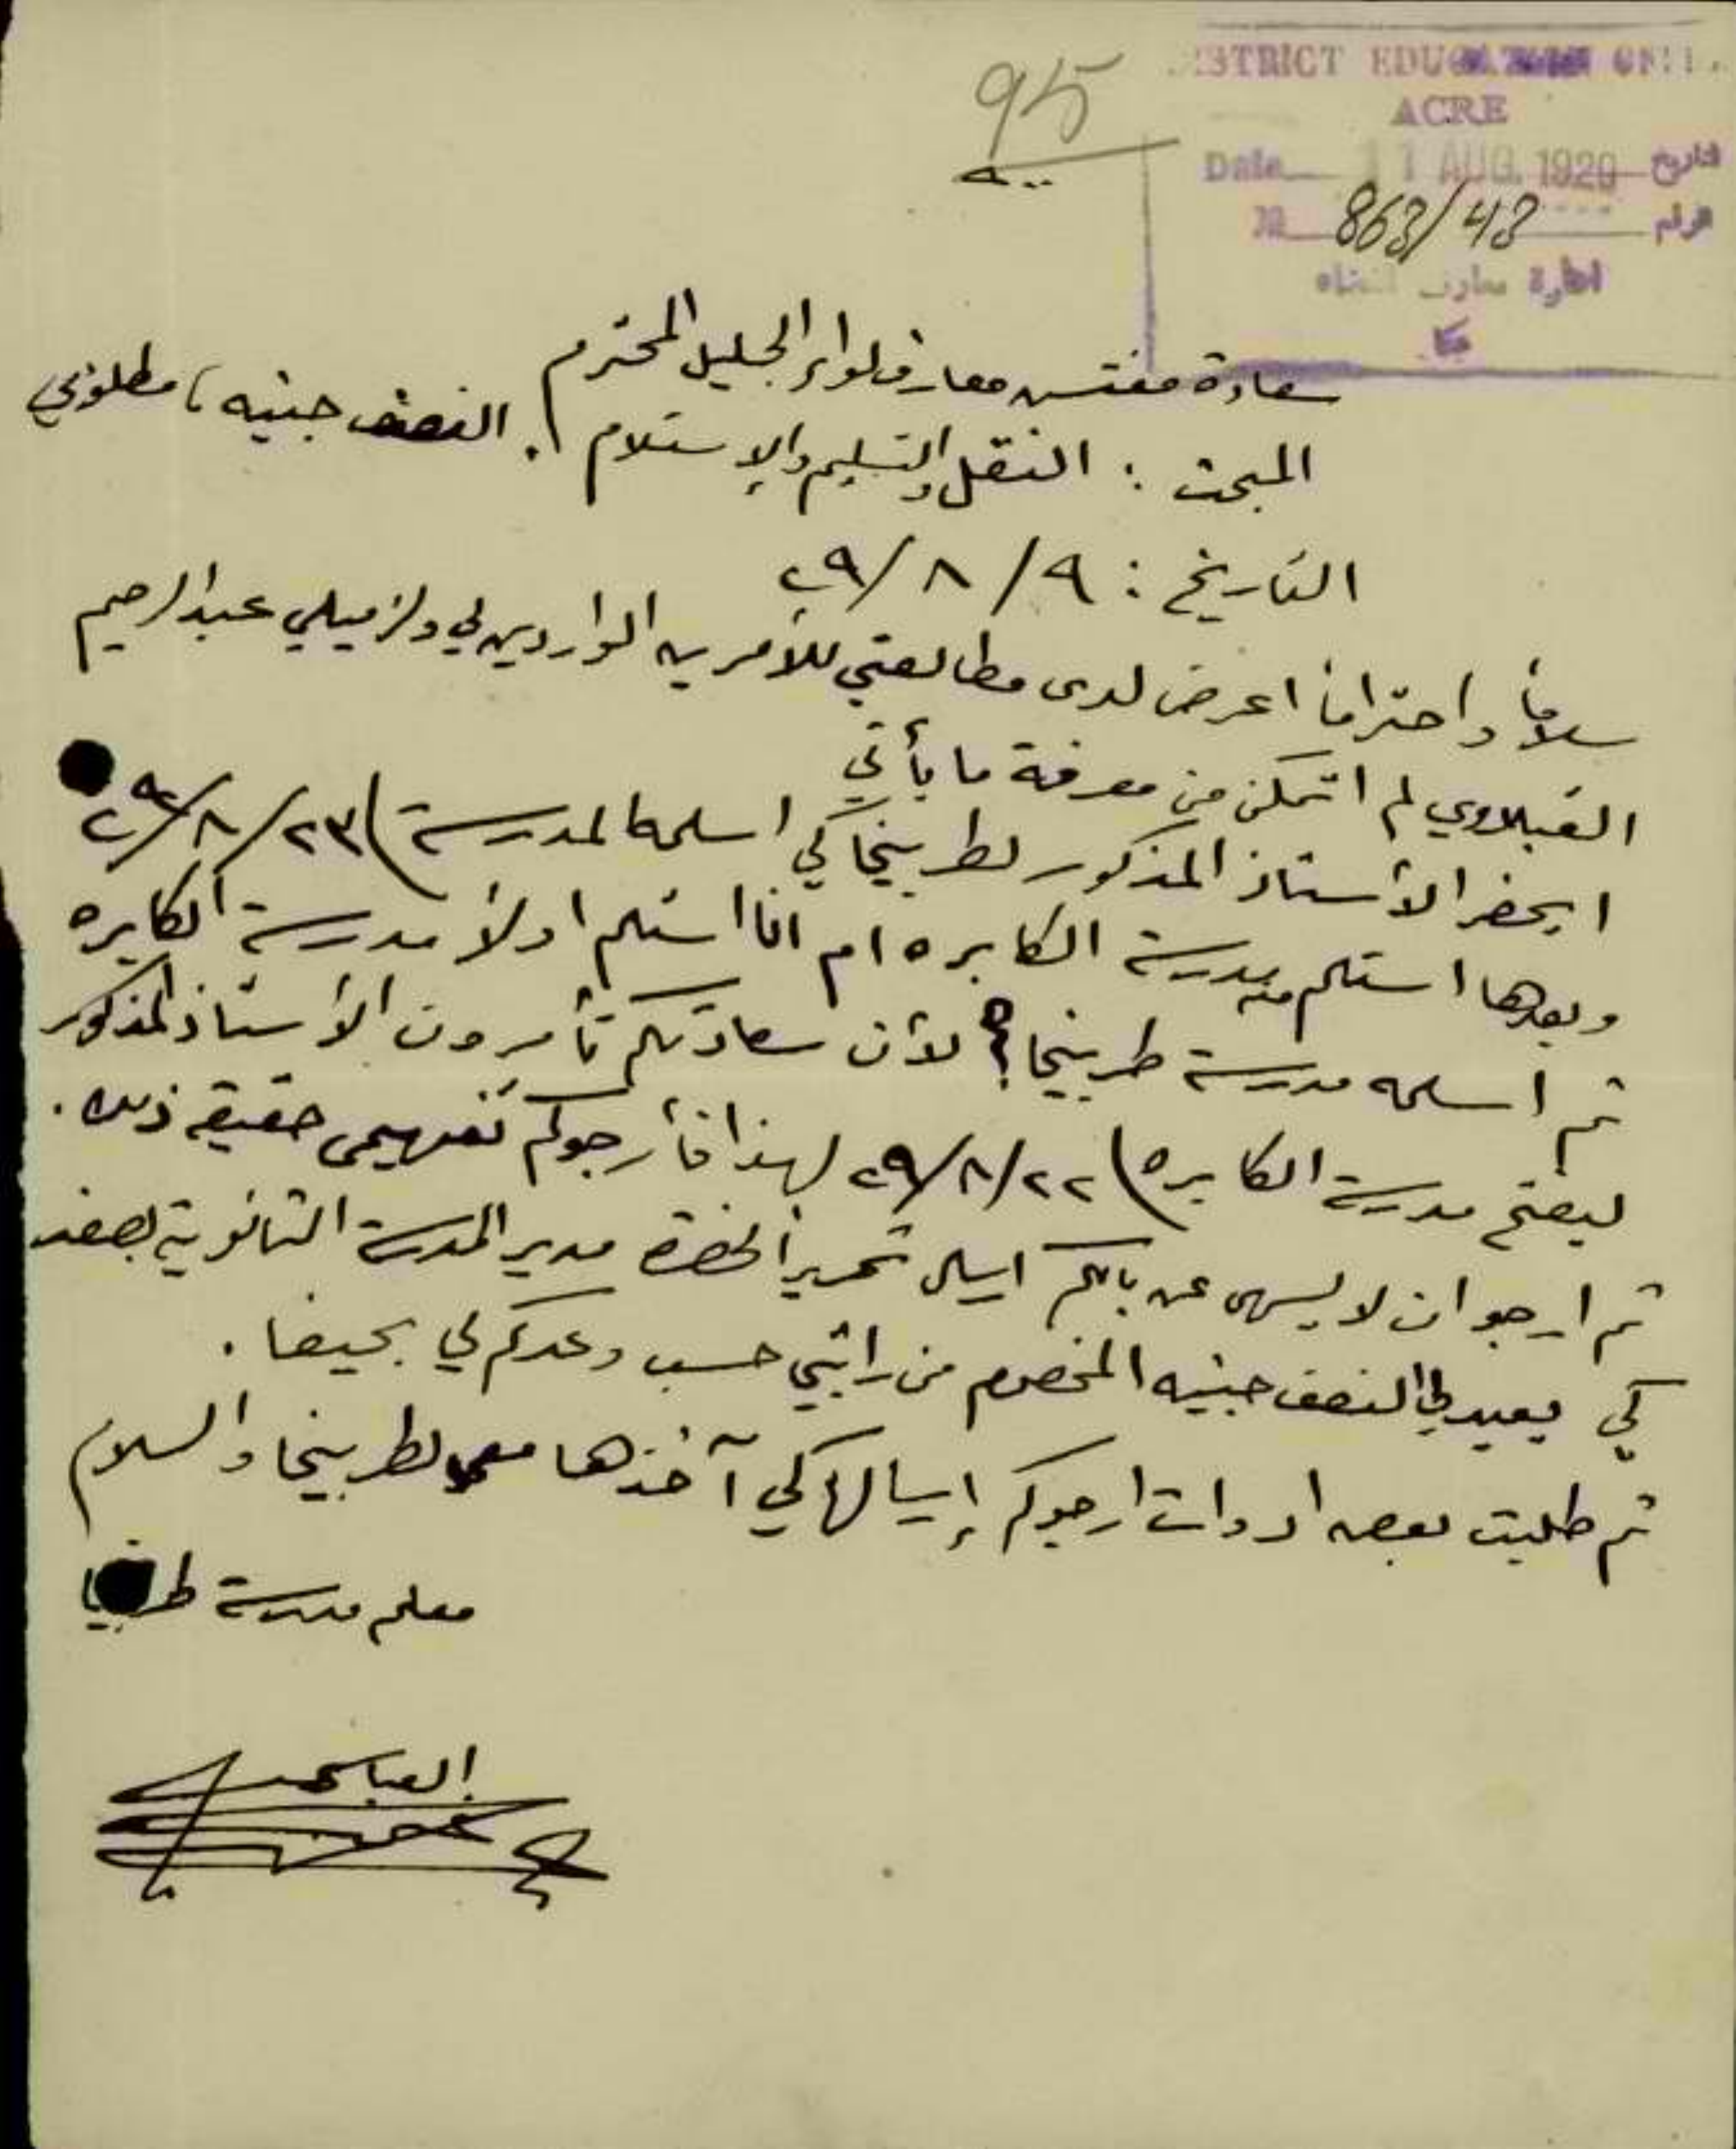 95
DISTRICT EDUCATION OFFICE
ACRE
Date 11 AUG. 1929 تاريخ
No 863/43 الرقم
ادارة معارف القضاء
عكا
سعادة مفتش معارف لواء الجليل المحترم
المبحث : النقل والتسليم والإستلام . النصف جنيه، مطلوبي
التاريخ : ٩ / ٨ / ٢٩
سلاماً واحتراماً اعرض لدى مطالعتي للأمرين الواردين لي ولزميلي عبد الرحيم
القبلاوي لم اتمكن من معرفة ما يأتي
ايحضر الأستاذ المذكور لطربيخا كي اسلمه المدرسة في ٢٣ / ٨ / ٢٩
وبعدها استلم منه مدرسة الكابره ام انا استلم اولاً مدرسة الكابره
ثم اسلمه مدرسة طربيخا؟ لأن سعادتكم تأمرون الأستاذ المذكور
ليفتح مدرسة الكابره في ٢٢ / ٨ / ٢٩ لهذا فأرجوكم تفهيمي حقيقة ذلك .
ثم ارجو ان لا يسهى عن بالكم ارسال تحريراً لحضرة مدير المدرسة الثانوية بصفد
كي يعيد لي النصف جنيه المخصوم من راتبي حسب وعدكم لي بحيفا .
ثم طلبت بعض ادوات ارجوكم إرسالها كي آخذها معي لطربيخا والسلام
معلم مدرسة طربيخا